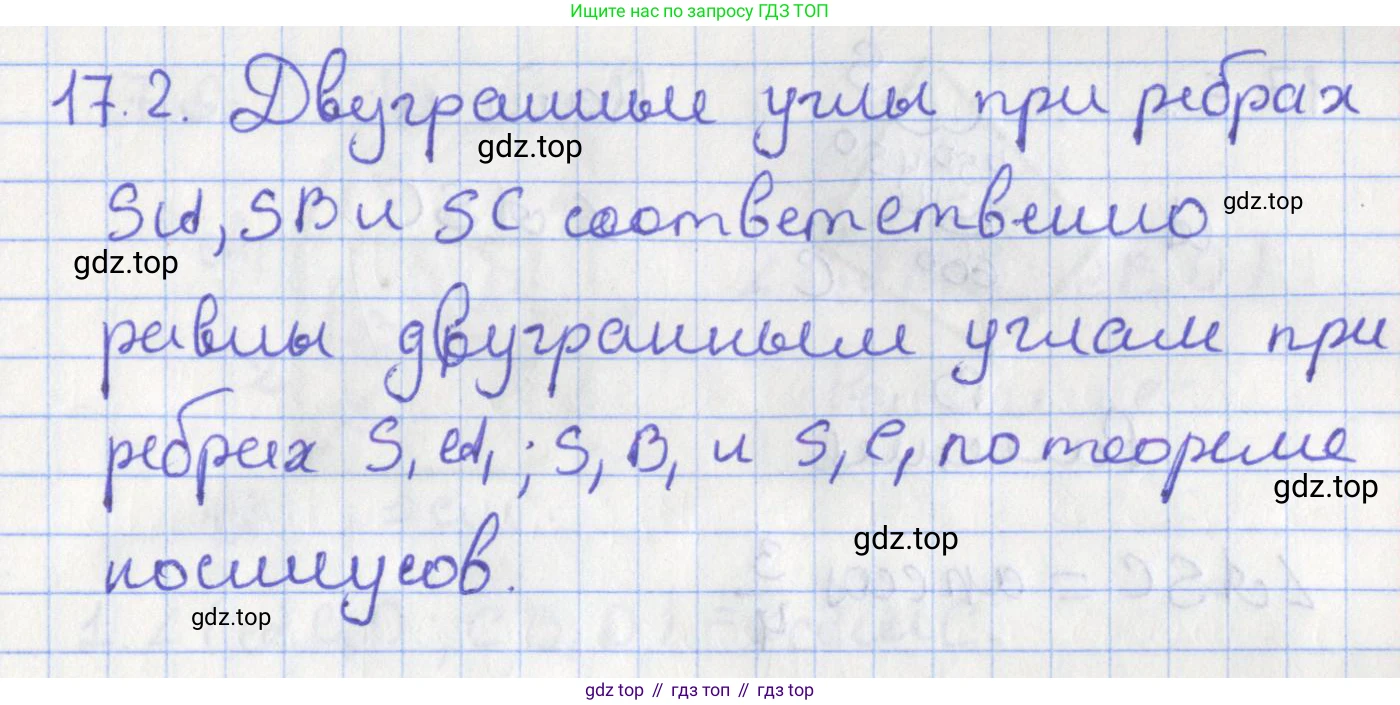 Ищите нас по запросу ГДЗ ТОП
17.2. Двугранные углы при ребрах
gdz.top
SA, SB и SC соответственно
gdz.top
gdz.top
равны двугранным углам при
ребрах S₁A₁; S₁B₁ и S₁C₁ по теореме
gdz.top
gdz.top
косинусов.
gdz.top
gdz top // гдз топ // gdz top